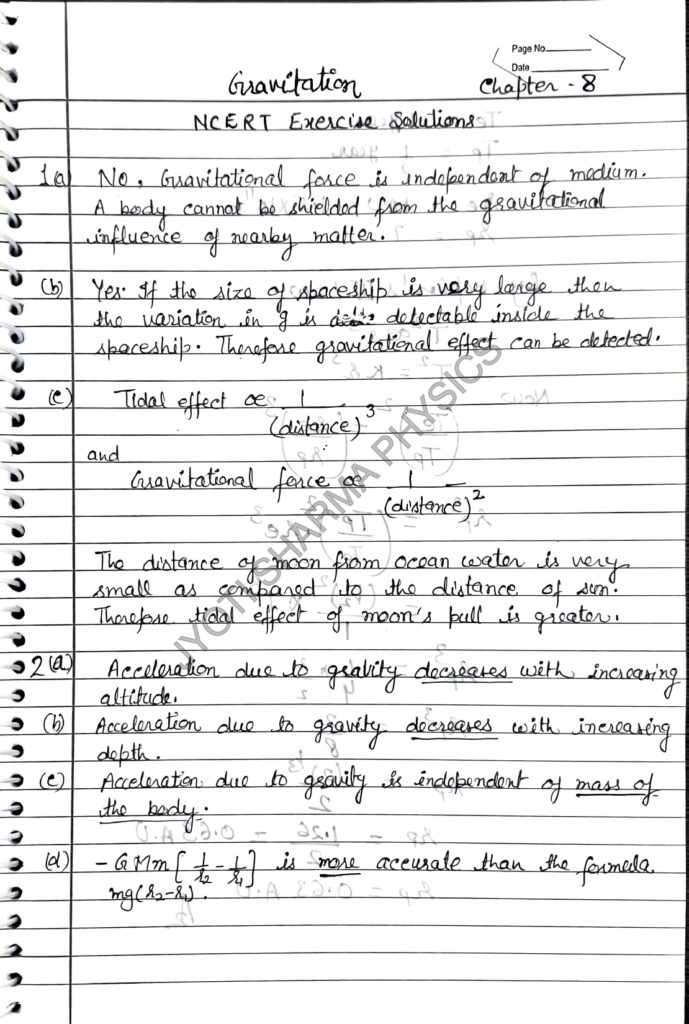 Page No.
Date
Gravitation
Chapter - 8
NCERT Exercise Solutions
1(a) No, Gravitational force is independent of medium.
A body cannot be shielded from the gravitational
influence of nearby matter.
(b) Yes. If the size of spaceship is very large then
the variation in g is detectable inside the
spaceship. Therefore gravitational effect can be detected.
(c) Tidal effect ∝ 1/(distance)³
and
Gravitational force ∝ 1/(distance)²
The distance of moon from ocean water is very
small as compared to the distance of sun.
Therefore tidal effect of moon's pull is greater.
2(a) Acceleration due to gravity decreases with increasing
altitude.
(b) Acceleration due to gravity decreases with increasing
depth.
(c) Acceleration due to gravity is independent of mass of
the body.
(d) - G Mm [1/r₂ - 1/r₁] is more accurate than the formula
mg(r₂-r₁).
JYOTI SHARMA PHYSICS